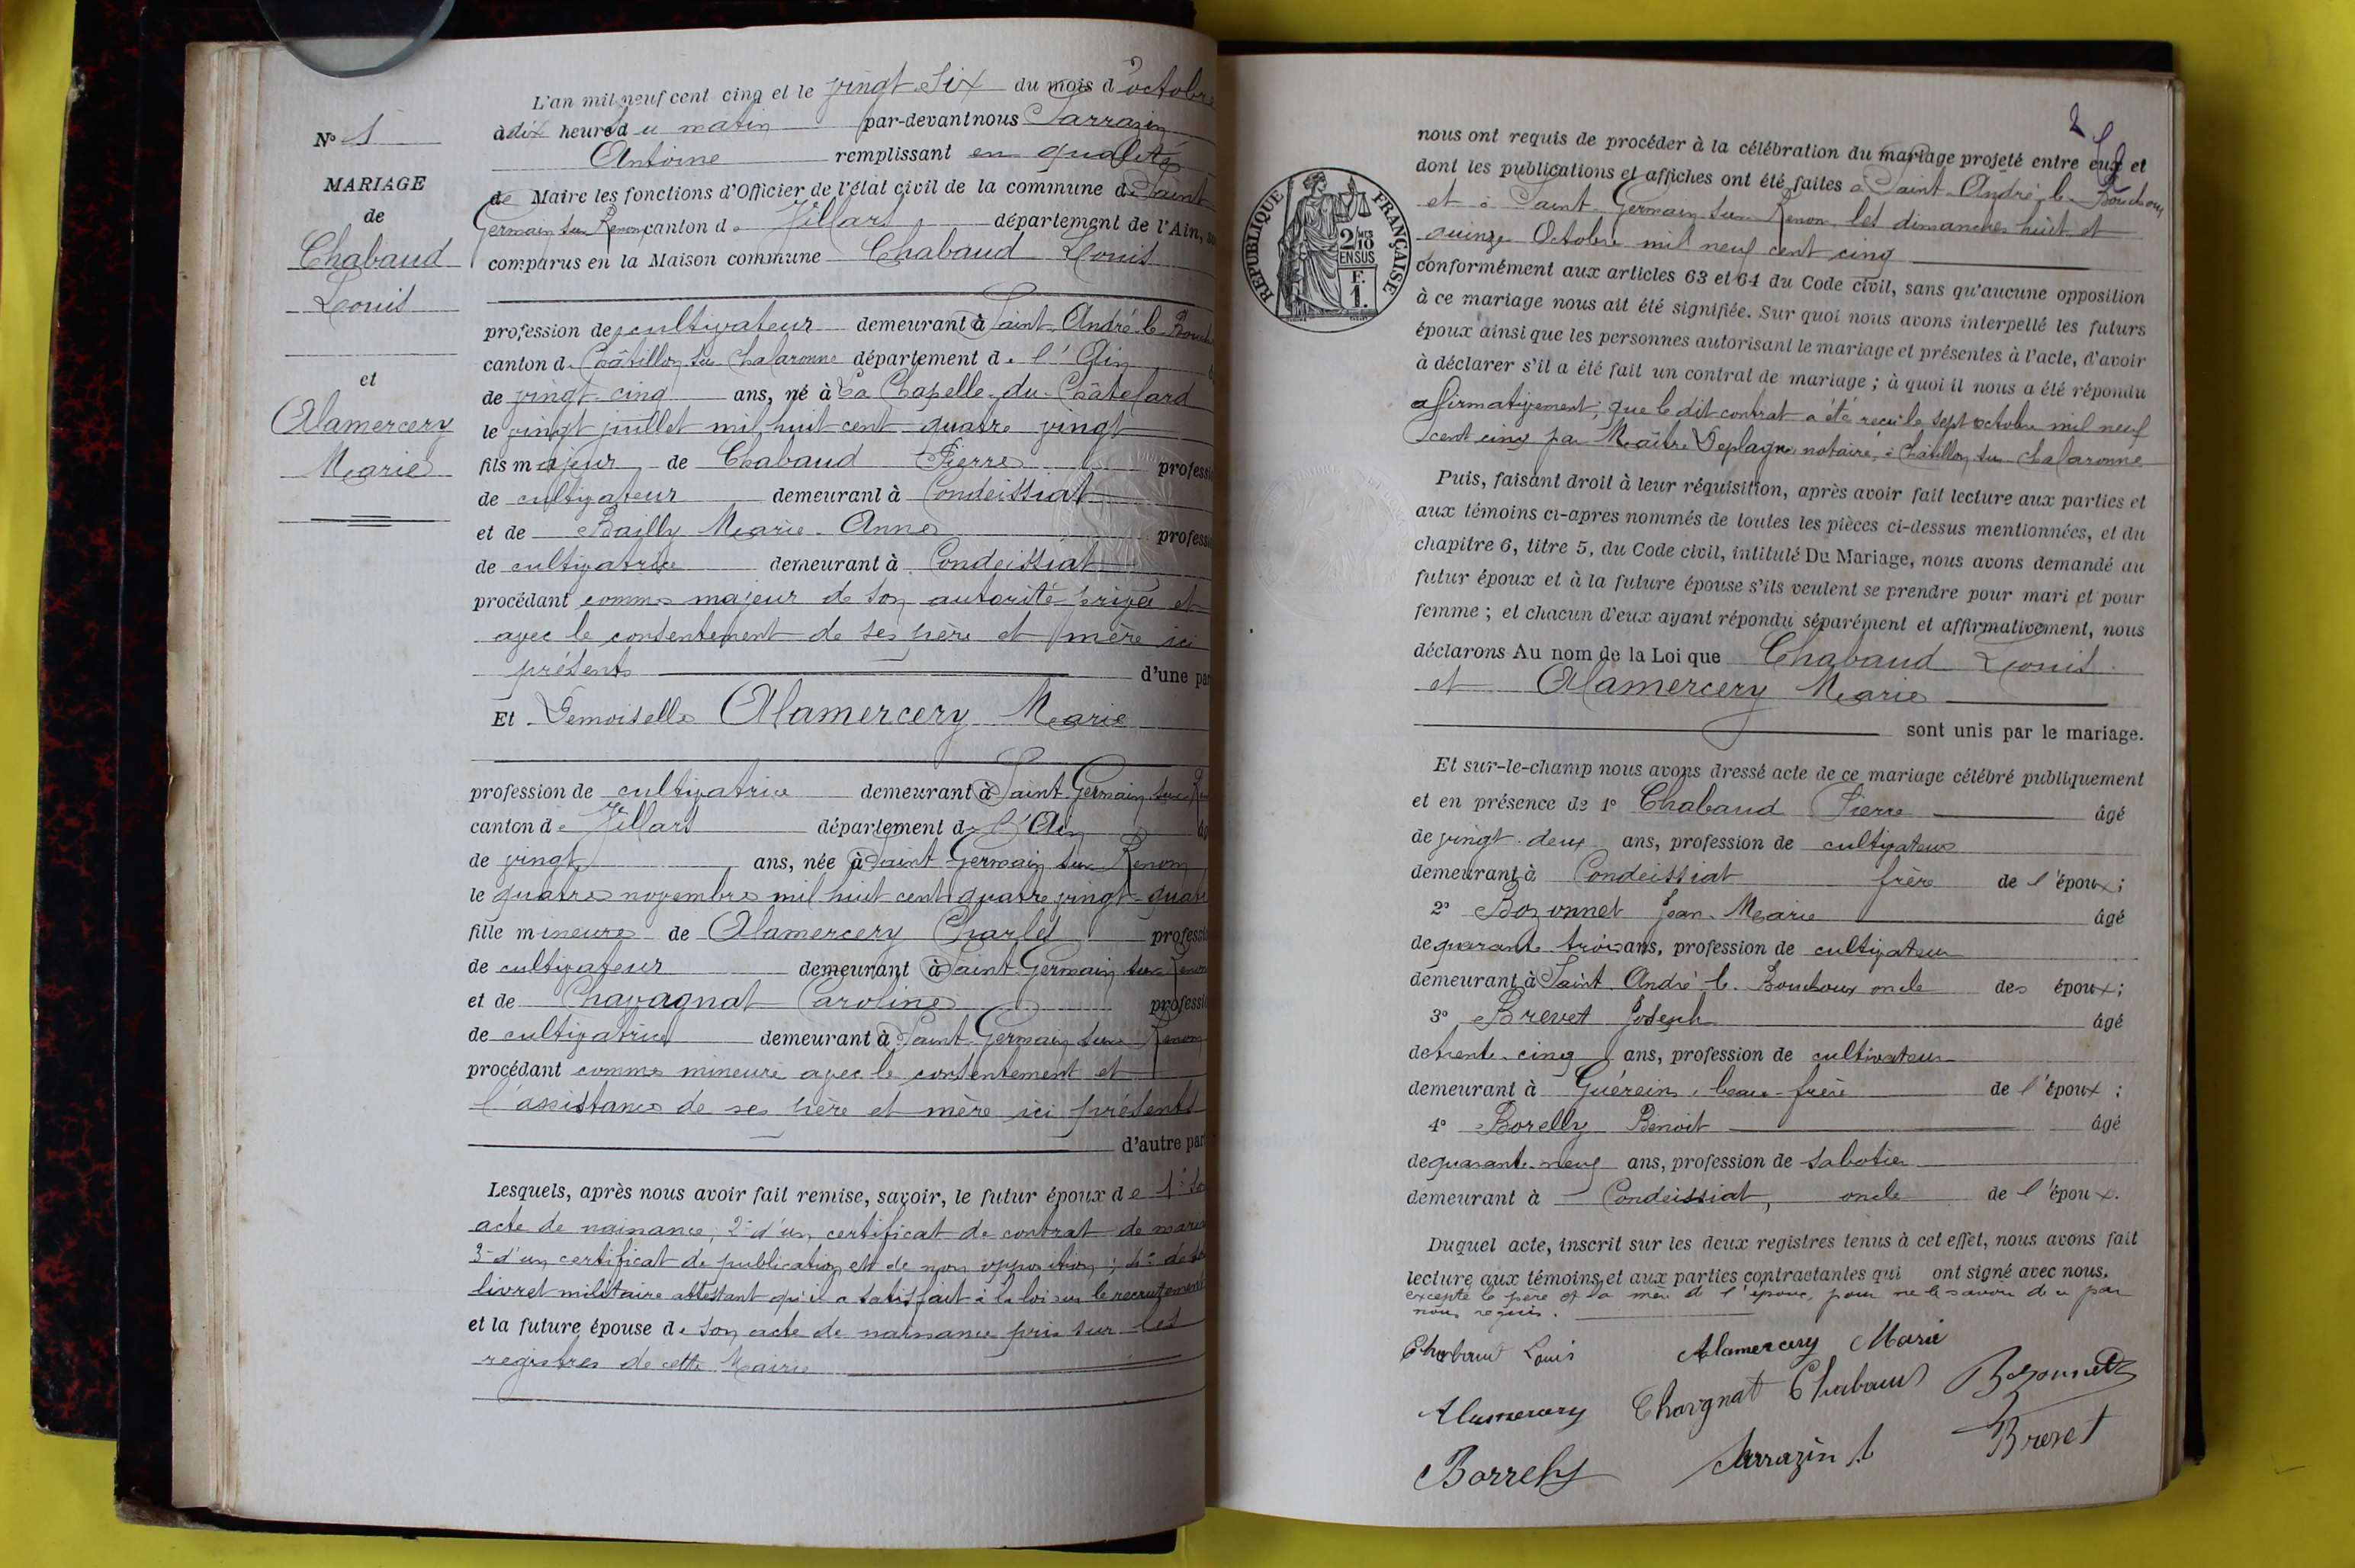 L'an mil neuf cent cinq et le vingt-six du mois d'octobre
à dix heures du matin par-devant nous Sarrazin
Antoine remplissant en qualité
de Maire les fonctions d'Officier de l'état civil de la commune de Saint
Germain sur Renon canton de Villars département de l'Ain,
comparus en la Maison commune Chabaud Louis
profession de cultivateur demeurant à Saint André le
canton de Châtillon sur Chalaronne département de l'Ain
de vingt-cinq ans, né à La Chapelle-du-Châtelard
le vingt juillet mil huit cent quatre vingt
fils majeur de Chabaud Pierre
de cultivateur demeurant à Condeissiat
et de Bailly Marie-Anne
de cultivatrice demeurant à Condeissiat
procédant comme majeur de son autorité privée et
avec le consentement de ses père et mère ici
présents d'une
Et Demoiselle Alamercery Marie
profession de cultivatrice demeurant à Saint Germain sur
canton de Villars département de l'Ain
de vingt ans, née à Saint Germain sur Renon
le quatre novembre mil huit cent quatre vingt-
fille mineure de Alamercery Charles
de cultivateur demeurant à Saint Germain sur Renon
et de Chavagnat Caroline
de cultivatrice demeurant à Saint Germain sur Renon
procédant comme mineure avec le consentement et
l'assistance de ses père et mère ici présents
d'autre
Lesquels, après nous avoir fait remise, savoir, le futur époux de 1°
acte de naissance, 2° d'un certificat de contrat de
3° d'un certificat de publication et de non opposition ; 4° de
livret militaire attestant qu'il a satisfait à la loi sur le recrutement
et la future épouse de son acte de naissance pris sur les
registres de cette Mairie
N° 5
MARIAGE
de
Chabaud
Louis
et
Alamercery
Marie
nous ont requis de procéder à la célébration du mariage projeté entre eux et
dont les publications et affiches ont été faites à Saint-André-le-Bouchoux
et à Saint-Germain sur Renon, les dimanches huit et
quinze Octobre mil neuf cent cinq
conformément aux articles 63 et 64 du Code civil, sans qu'aucune opposition
à ce mariage nous ait été signifiée. Sur quoi nous avons interpellé les futurs
époux ainsi que les personnes autorisant le mariage et présentes à l'acte, d'avoir
à déclarer s'il a été fait un contrat de mariage ; à quoi il nous a été répondu
affirmativement, que le dit contrat a été reçu le sept octobre mil neuf
cent cinq par Maître Deplagne notaire, à Châtillon sur Chalaronne
Puis, faisant droit à leur réquisition, après avoir fait lecture aux parties et
aux témoins ci-après nommés de toutes les pièces ci-dessus mentionnées, et du
chapitre 6, titre 5, du Code civil, intitulé Du Mariage, nous avons demandé au
futur époux et à la future épouse s'ils veulent se prendre pour mari et pour
femme ; et chacun d'eux ayant répondu séparément et affirmativement, nous
déclarons Au nom de la Loi que Chabaud Louis
et Alamercery Marie
sont unis par le mariage.
Et sur-le-champ nous avons dressé acte de ce mariage célébré publiquement
et en présence de 1° Chabaud Pierre âgé
de vingt-deux ans, profession de cultivateur
demeurant à Condeissiat frère de l'époux ;
2° Bozonnet Jean-Marie âgé
de quarante trois ans, profession de cultivateur
demeurant à Saint André le Bouchoux oncle des époux ;
3° Brevet Joseph âgé
de trente-cinq ans, profession de cultivateur
demeurant à Guéreins, beau-frère de l'époux ;
4° Borelly Benoit âgé
de quarante-neuf ans, profession de sabotier
demeurant à Condeissiat, oncle de l'époux.
Duquel acte, inscrit sur les deux registres tenus à cet effet, nous avons fait
lecture aux témoins et aux parties contractantes qui ont signé avec nous.
excepté le père et la mère de l'époux, pour ne le savoir de ce par
nous requis.
Chabaud Louis Alamercery Marie
Alamercery Chavagnat Chabaud Bozonnet
Borrelly Sarrazin A Brevet
RÉPUBLIQUE FRANÇAISE
2/10
EN SUS
F.
1.